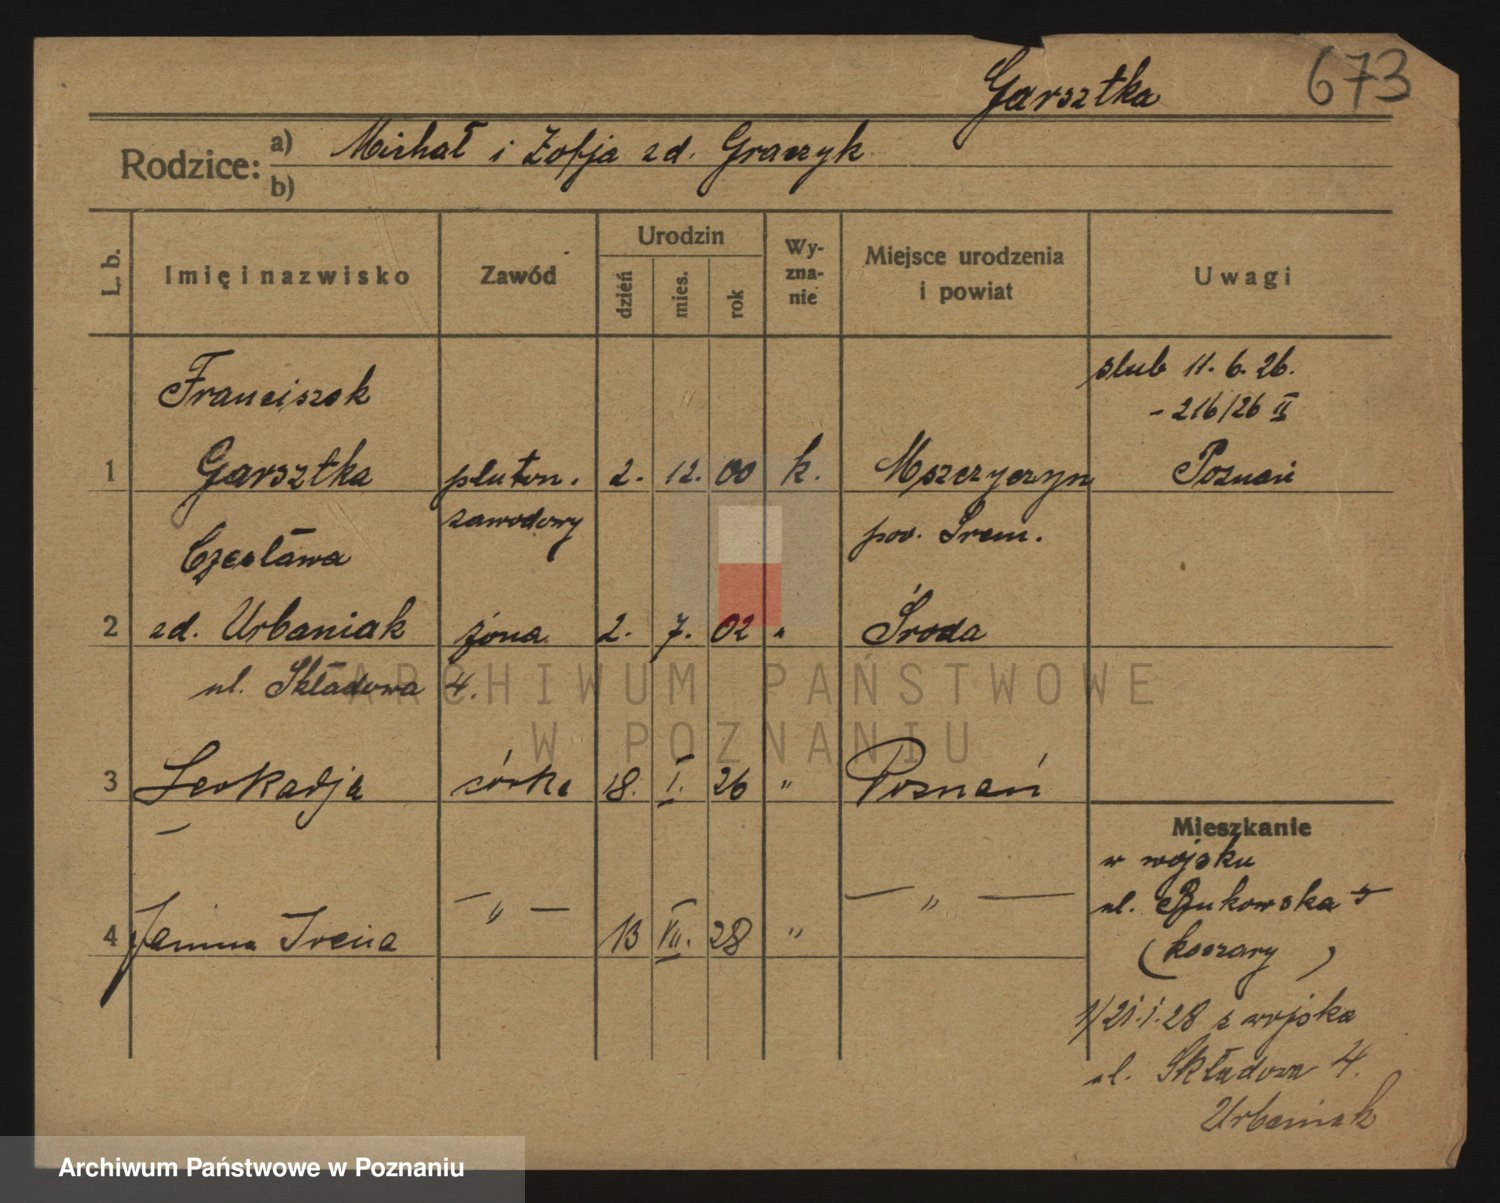 Garsztka 673
Rodzice: a) Michał i Zofja zd. Graczyk
b)
L. b. Imię i nazwisko Zawód Urodzin dzień mies. rok Wyznanie Miejsce urodzenia i powiat Uwagi
Franciszek
ślub 11. 6. 26.
- 216/26 II
1 Garsztka pluton. 2. 12. 00 k. Mszczyczyn Poznań
zawodowy pow. Śrem.
Czesława
2 zd. Urbaniak żona 2. 7. 02 " Środa
ul. Składowa 4.
3 Leokadja córka 18. I. 26 " Poznań
Mieszkanie
w wojsku
— " — — " —
ul. Bukowska
4 Janina Irena 13 VII. 28 "
(koszary)
1/21.1.28 z wojska
ul. Składowa 4.
Urbaniak
ARCHIWUM PAŃSTWOWE
W POZNANIU
Archiwum Państwowe w Poznaniu